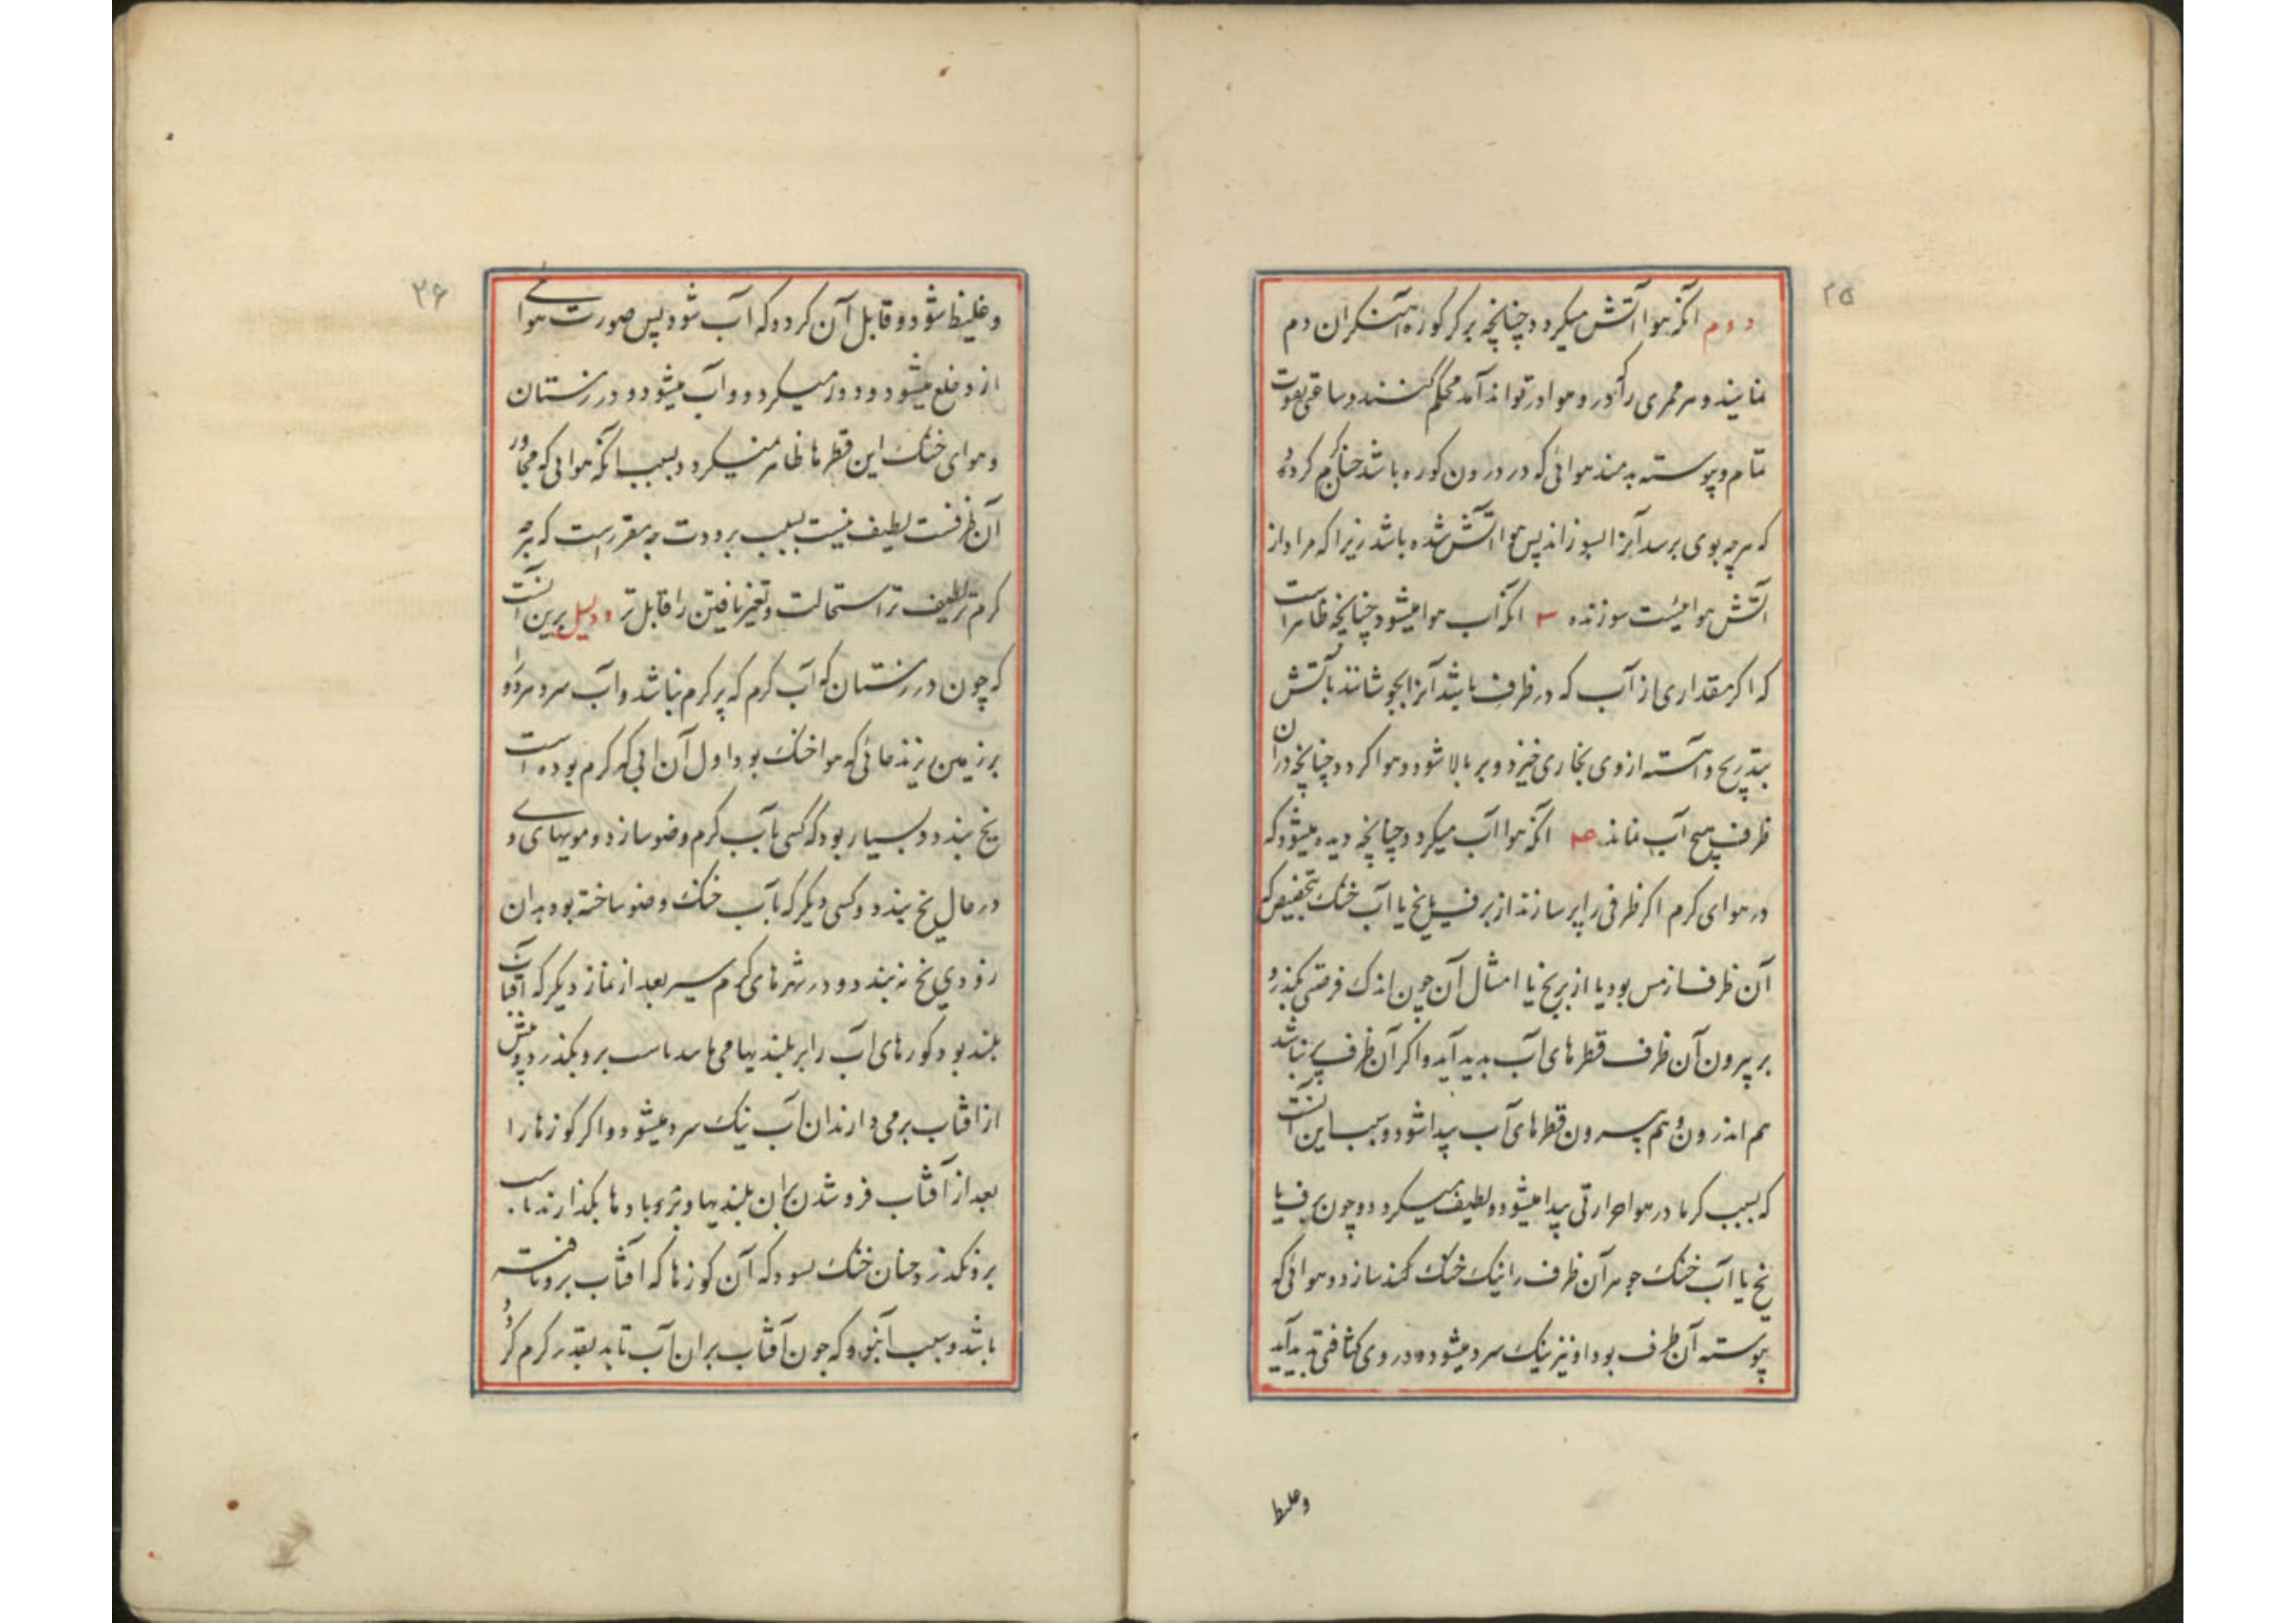 ۲۵
دوم آنکه هوا آتش میکردد چنانچه بر کر کوره آهنکران دم
نمایند و هر ممری را که در و هوا در تواند آمد محکم کنند و ساعتی بقوت
تمام و پیوسته بدمند هوائی که در درون کوره باشد چنان گرم کردد
که هرچه بوی برسد آنرا بسوزاند پس هوا آتش شده باشد زیرا که مراد از
آتش هوائیست سوزنده ۳ آنکه آب هوا میشود چنانچه ظاهر است
که اکر مقداری از آب که در ظرف باشد آنرا بجوشانند بآتش
بتدریج و آهسته از وی بخاری خیزد و بر بالا شود و هوا کردد چنانچه در آن
ظرف هیچ آب نماند ۴ آنکه هوا آب میکردد چنانچه دیده میشود که
در هوای کرم اکر ظرفی را پر سازند از برف یا یخ یا آب خنک بتخصیص که
آن ظرف از مس بود یا از برنج یا امثال آن چون اندک فرصتی بکذرد
بر بیرون آن ظرف قطرهای آب پدید آید و اکر آن ظرف پر نباشد
هم اندرون و هم بیرون قطرهای آب پیدا شود و سبب این آنست
که بسبب کرما در هوا حرارتی پیدا میشود و لطیف میکردد و چون برف یا
یخ یا آب خنک جوهر آن ظرف را نیک خنک کند سازد و هوائی که
پیوسته آن ظرف بود او نیز نیک سرد میشود و در وی کثافتی پدید آید
وغلیظ
۲۶
و غلیظ شود و قابل آن کردد که آب شود پس صورت هوائی
از و خلع میشود و دور میکردد و آب میشود و در زمستان
و هوای خنک این قطرها ظاهر نمیکردد بسبب آنکه هوائی که مجاور
آن ظرفست لطیف نیست بسبب برودت چه مقرر است که هر چه
کرم تر لطیف تر استحالت و تغیر یافتن را قابل تر و دلیل برین آنست
که چون در زمستان که آب کرم که پر کرم نباشد و آب سرد هر دو را
بر زمین ریزند مائی که هوا خنک بود اول آن آبی که کرم بوده است
یخ بندد و بسیار بود که کسی بآب کرم وضو سازد و مویهای وی
در حال یخ بندد و کسی دیکر که بآب خنک وضو ساخته بود بدان
زودی یخ نه بندد و در شهرهای کرم سیر بعد از نماز دیکر که آفتاب
بلند بود کوزهای آب را بر بلندیها می برو بکذرد و پیش
از آفتاب بر می دارند آن آب نیک سرد میشود و اکر کوزها را
بعد از آفتاب فرو شدن بران بلندیها و بادها بکذارند
برو بکذرد چنان خنک که آن کوزها که آفتاب برو تافته
باشد و سبب آن بود که چون آفتاب بران آب تابد بقدر کرم کردد